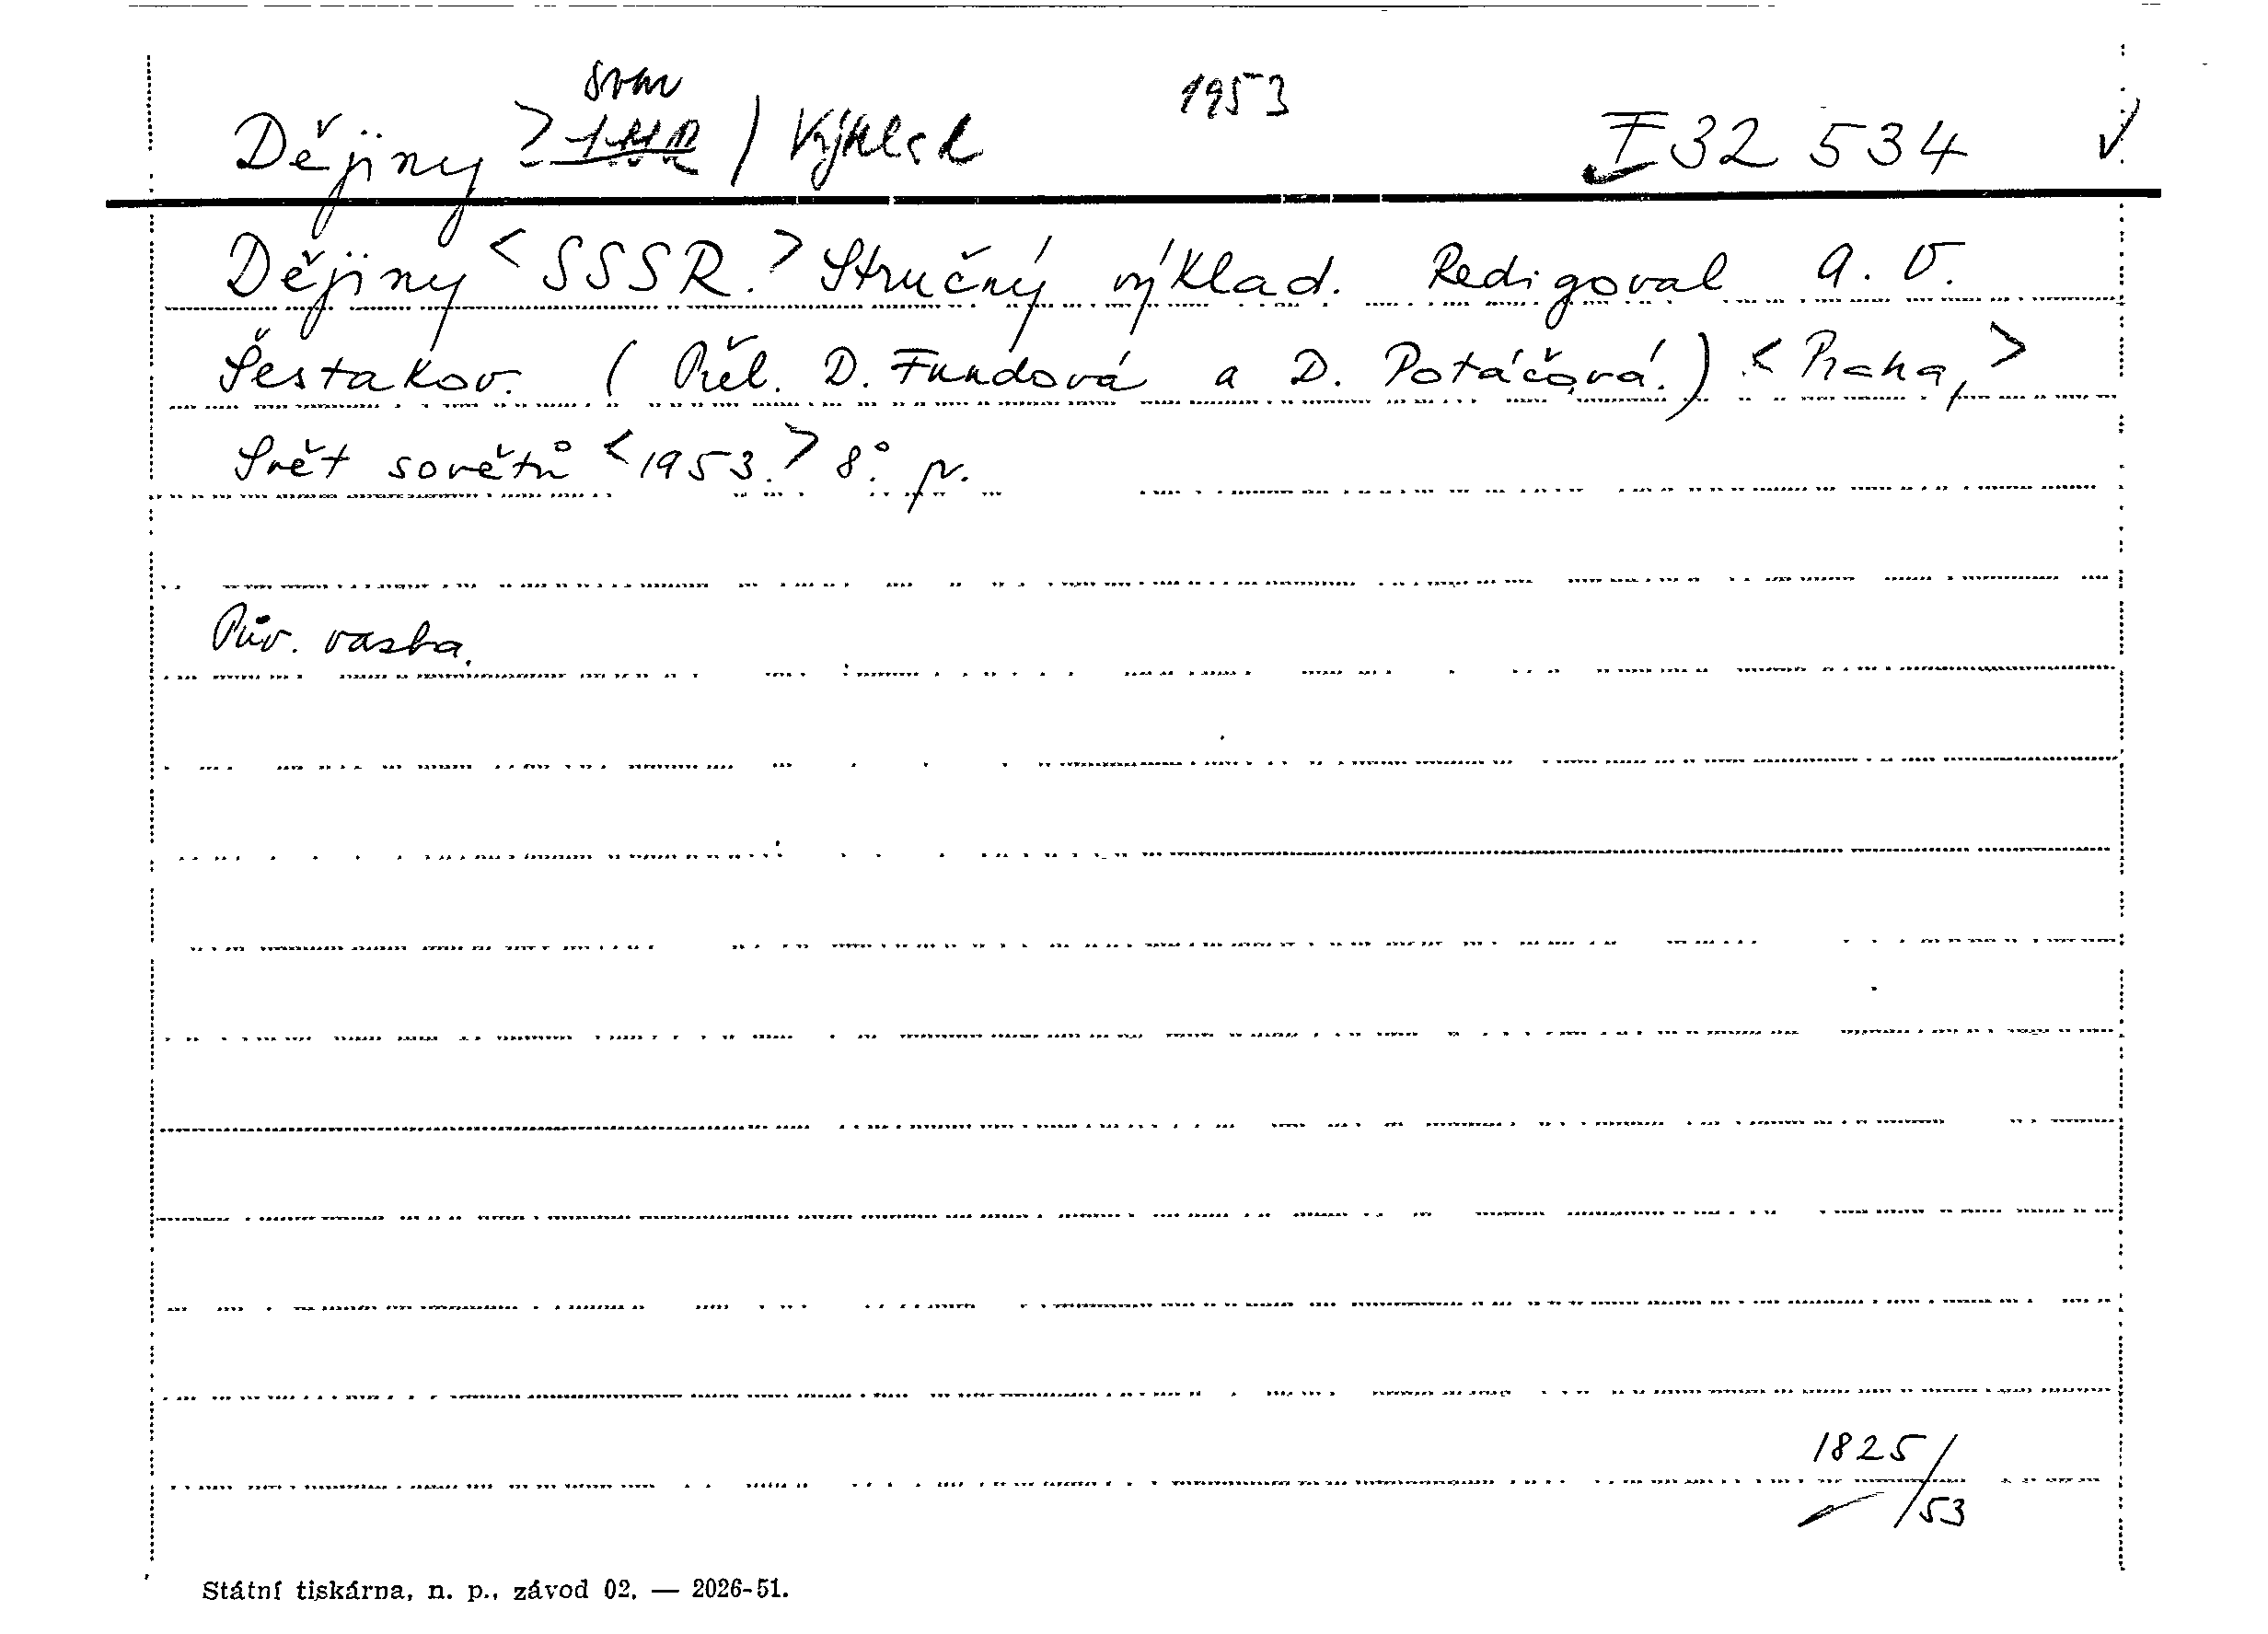 1953
Dějiny / Výklad I 32 534
Dějiny <SSSR.> Stručný výklad. Redigoval A. V.
Šestakov. (Přel. D. Fundová a D. Potáčová.) <Praha,>
Svět sovětů <1953.> 8°. p.
Pův. vazba.
1825/
53
Státní tiskárna, n. p., závod 02. — 2026-51.